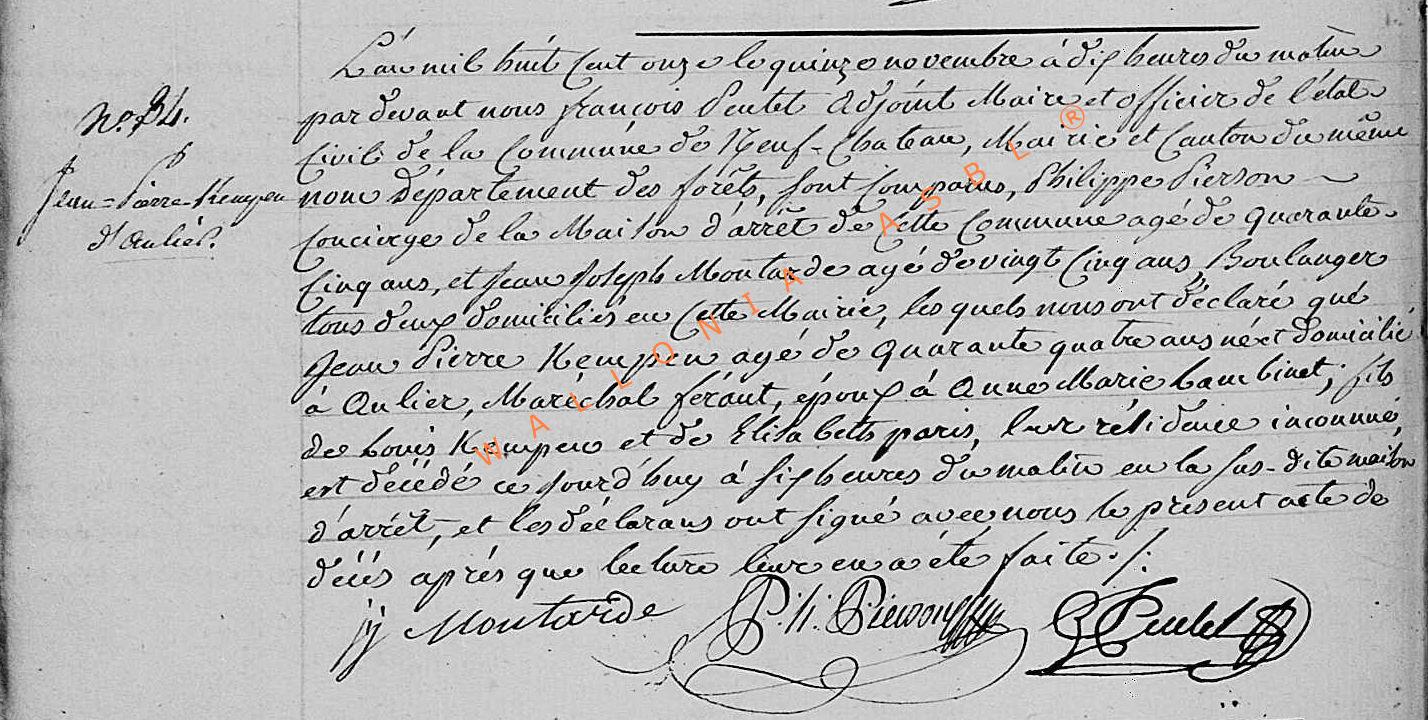 L'án mil huit Cent onze le quinze novembre à dix heures du matin
par devant nous françois Peutet Adjoint Maire et officier de l'état
No. 34.
Civil de la Commune de Neuf-Chateau, Mairie et Canton du même
Jean=Pierre Kempen
nom Département des forêts, sont Comparus, Philippe Pierson
d'Anlier.
Concierge de la Maison d'arrêt de Cette Commune agé de quarante
Cinq ans, et Jean Joseph Moutarde agé de vingt Cinq ans, Boulanger
tous deux domiciliés en Cette Mairie, les quels nous ont déclaré que
Jean Pierre Kempen agé de quarante quatre ans né et domicilié
à Anlier, Maréchal férant, époux à Anne Marie Lambinet; fils
de Louis Kempen et de Elisabeth paris, leur résidence inconnué,
est décédé ce jourd'huy à six heures du matin en la sus-dite maison
d'arrêt, et les déclarans ont signé avec nous le present acte de
décés aprés que lecture leur en a été faite ./.
jj Moutarde P.h. Pierson Peutet
WALLONIA ASBL ®